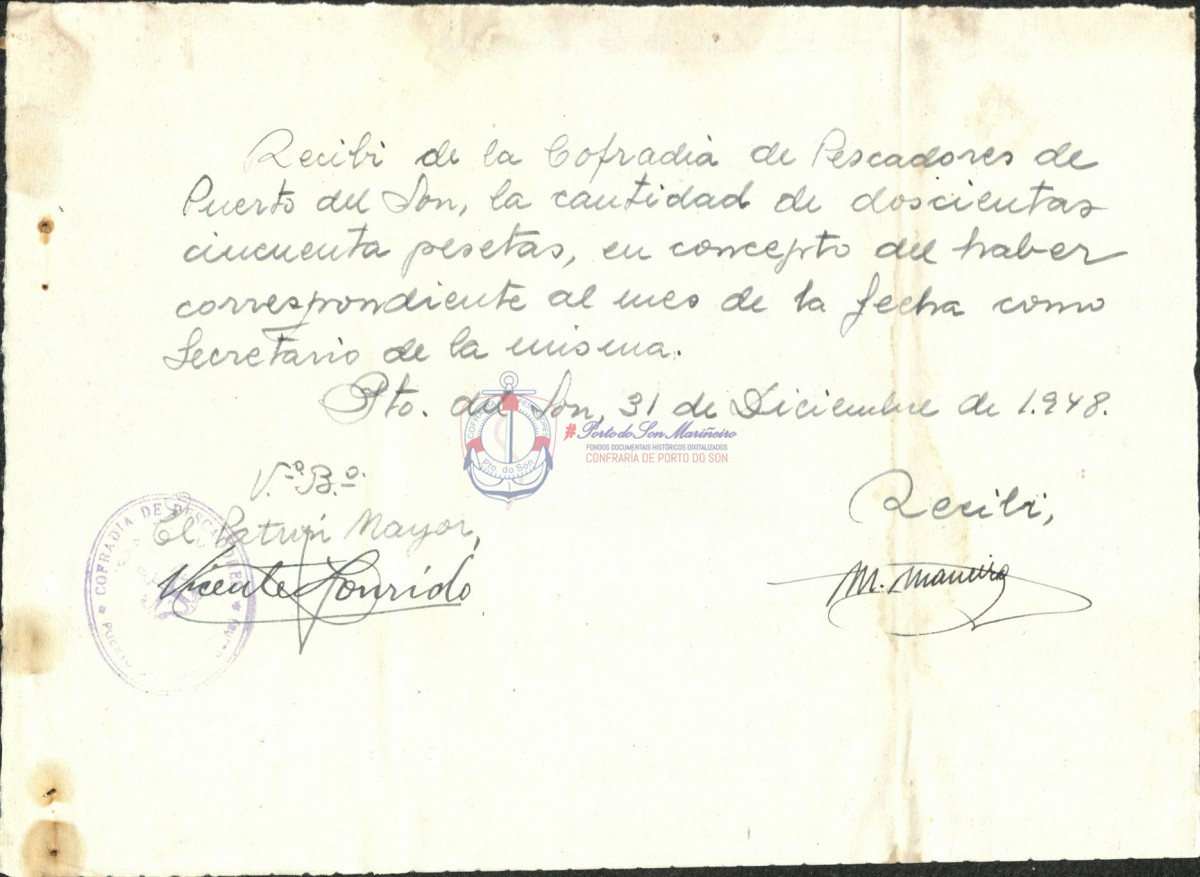 Recibi de la Cofradia de Pescadores de
Puerto del Son, la cantidad de doscientas
cincuenta pesetas, en concepto del haber
correspondiente al mes de la fecha como
Secretario de la misma.
Pto. del Son, 31 de Diciembre de 1.948.
#PortodoSonMariñeiro
FONDOS DOCUMENTAIS HISTÓRICOS DIXITALIZADOS
CONFRARÍA DE PORTO DO SON
Pto. do Son
V.º B.º
El Patrón Mayor,
Recibi,
Vicente Lourido
M. Maneiro
COFRADIA DE PESCADORES